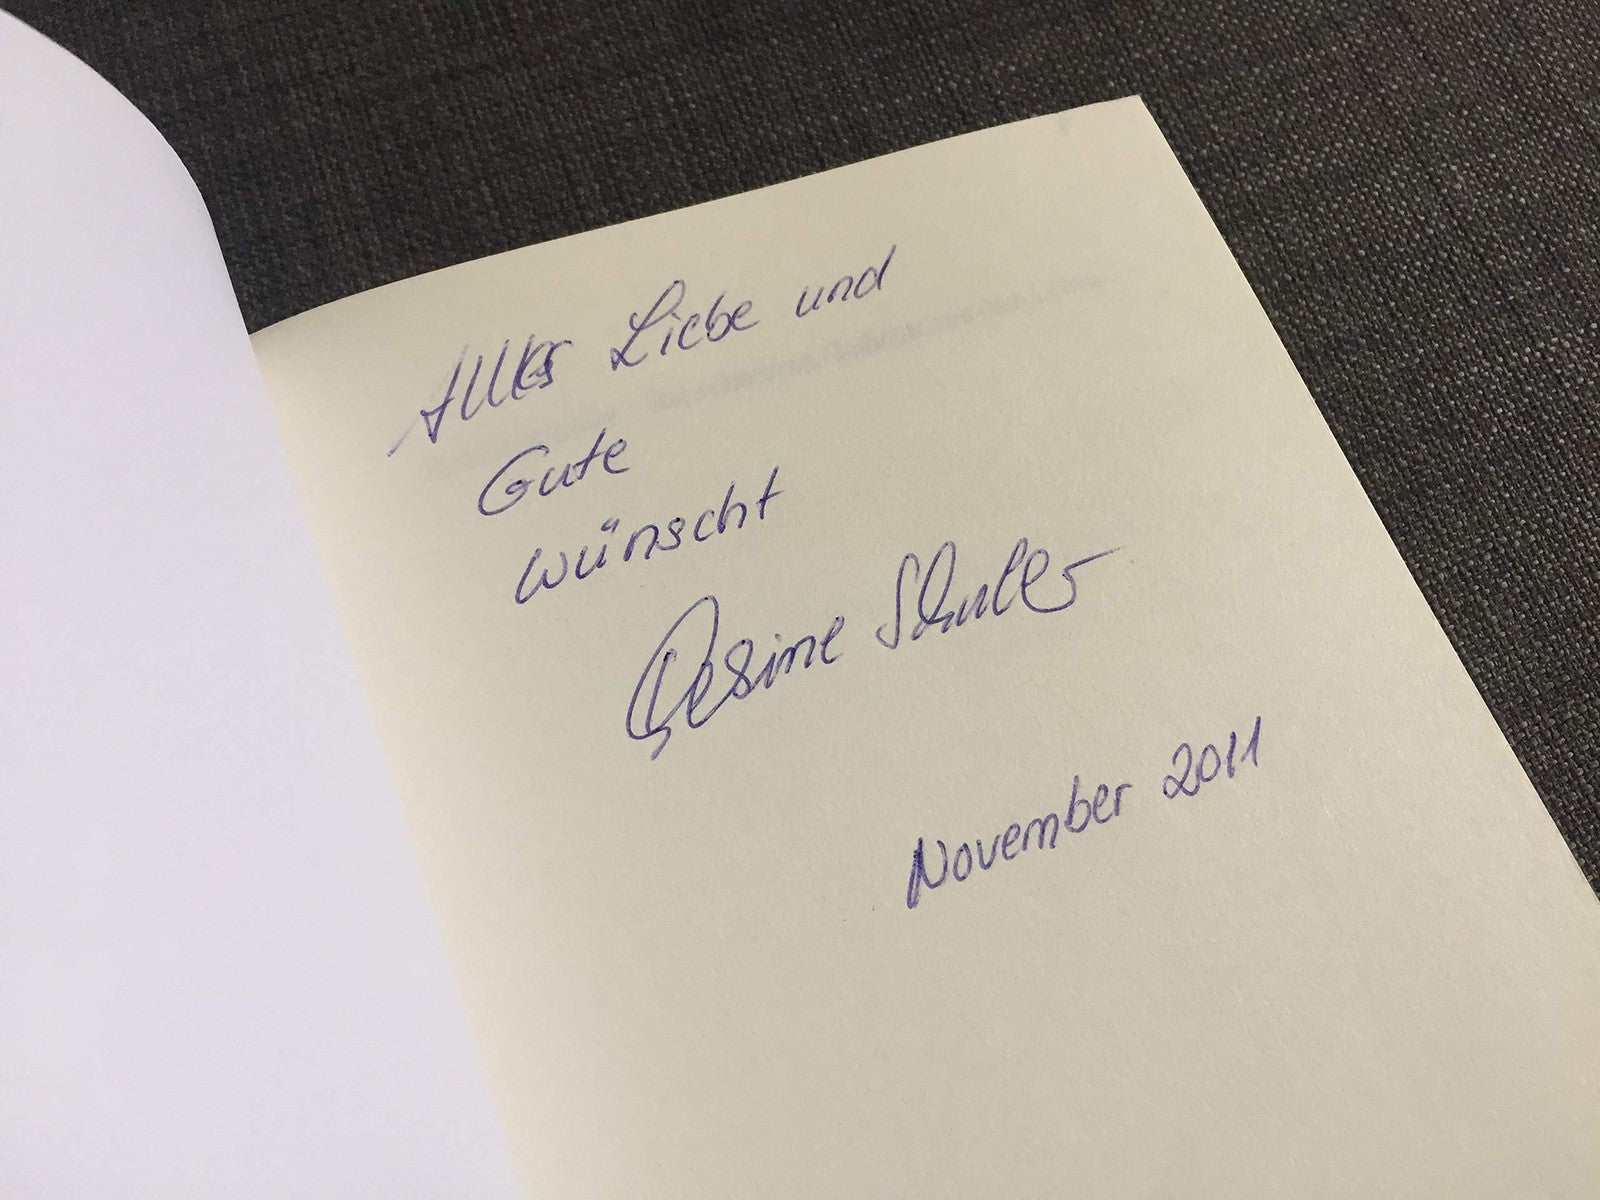 Alles Liebe und
Gute
wünscht
Gesine Schulz
November 2011